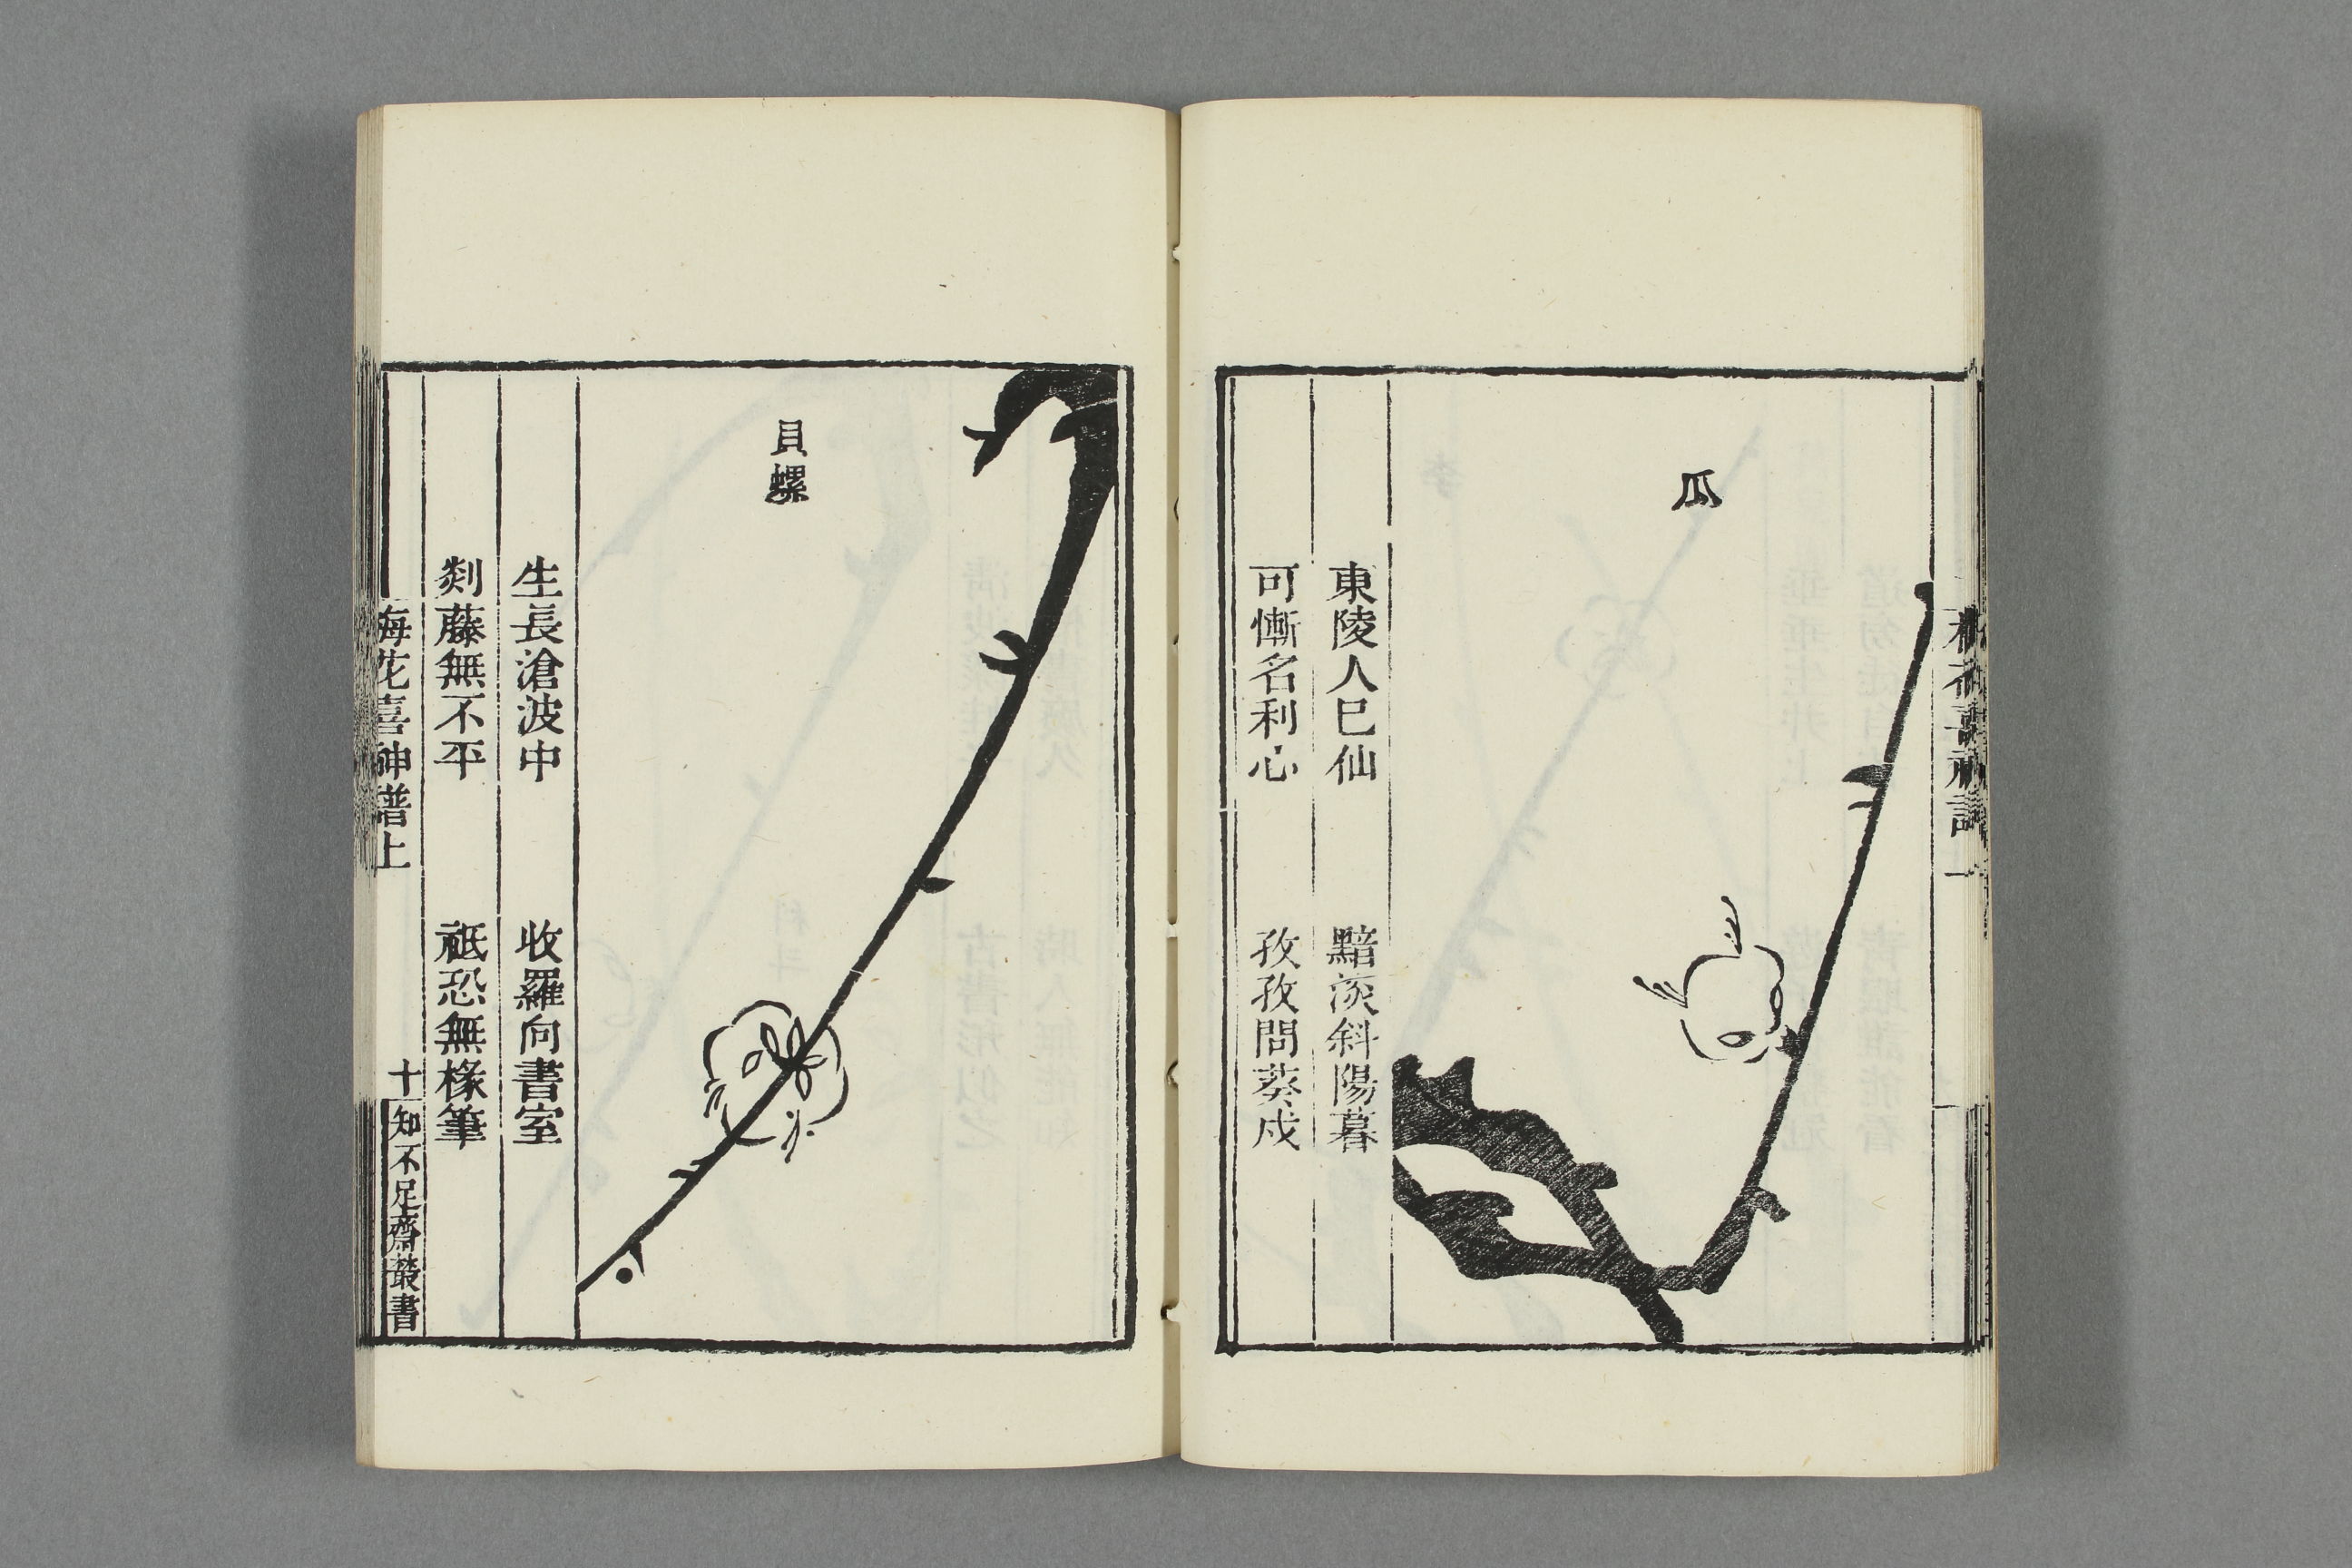 瓜
東陵人巳仙　黯淡斜陽暮
可慚名利心　孜孜問葵戍
貝螺
生長滄波中　收羅向書室
剡藤無不平　祗恐無椽筆
梅花喜神譜上　十
知不足齋叢書